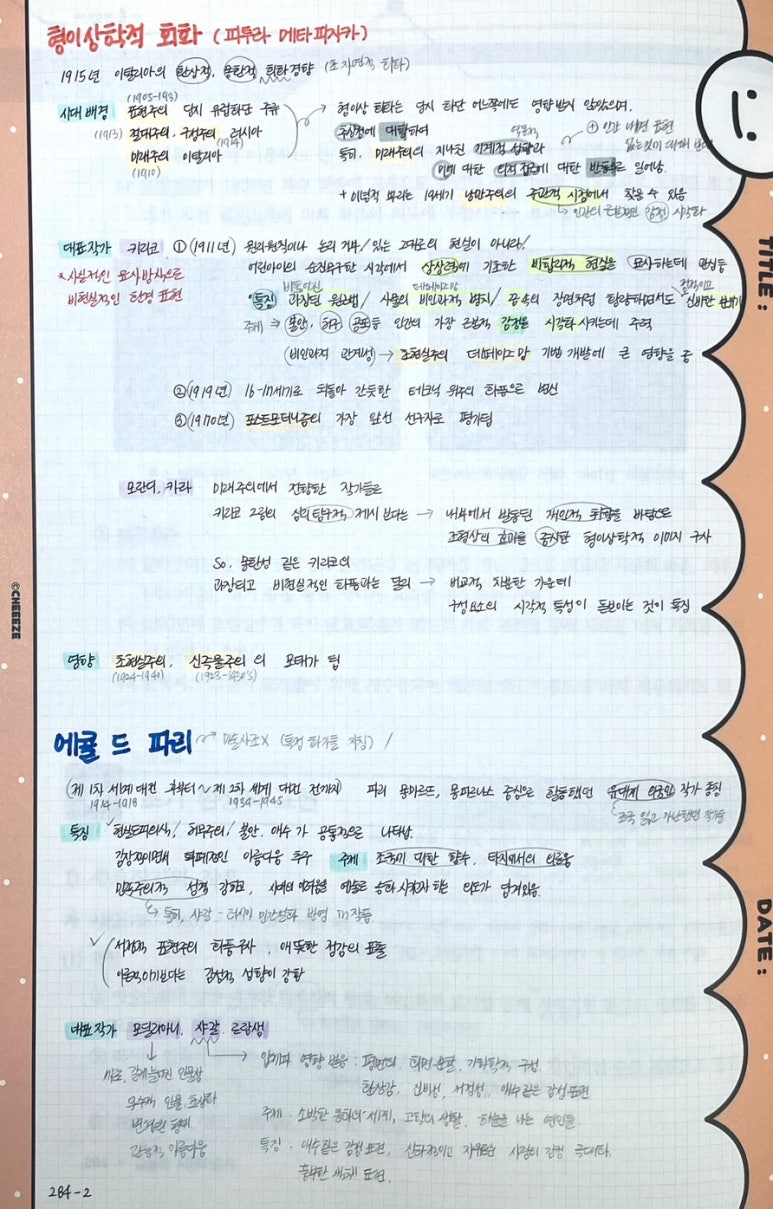 형이상학적 회화 (피투라 메타피지카)
1915년 이탈리아의 환상적, 몽환적 회화경향 (초자연적 회화)
(1905-193)
시대 배경 표현주의 당시 유럽화단 주류 → 형이상 회화는 당시 화단 어느쪽에도 영향받지 않았으며.
(1913) 절대주의, 구성주의 러시아 추상성에 대항하여
(1914)
⊕ 인간 내면 표현
미래주의 이탈리아 특히, 미래주의의 지나친 기계적 성향과
(1910) 미에 대한 의적 접근에 대한 반동으로 일어남.
+ 이념적 뿌리는 19세기 낭만주의의 주관적 시점에서 찾을 수 있음
↳ 인간의 근본적인 감정 시각화
대표작가 키리코 ① (1911년) 원리원칙이나 논리 거부 / 있는 그대로의 현실이 아니라!
* 사실적인 묘사방식으로 어린아이의 순진무구한 시각에서 상상력에 기초한 비합리적 현실을 묘사하는데 관심둠
비현실적인 환경 표현
비틀어진 데페이즈망
특징 과장된 원근법 / 사물의 비인과적 배치 / 꿈속의 장면처럼 황량하면서도 신비한 분위기
정적이고
주제 ⇒ 불안, 허구, 공포등 인간의 가장 근본적 감정을 시각화 시키는데 주력
(비인과적 관계성) → 초현실주의 데페이즈망 기법 개발에 큰 영향을 줌
②(1919년) 16-17세기로 되돌아 간듯한 테크닉 위주의 화풍으로 변신
③(1970년) 포스트모더니즘의 가장 앞선 선구자로 평가됨
모란디, 카라 미래주의에서 전향한 작가들로
키리코 그림의 심리 탐구적 제시 보다는 → 내부에서 발동된 개인적 취향을 바탕으로
조형상의 효과를 중시한 형이상학적 이미지 구사
So, 몽환성 같은 키리코의
과장되고 비현실적인 화풍과는 달리 → 비교적 차분한 가운데
구성요소의 시각적 특성이 돋보이는 것이 특징
영향 초현실주의, 신즉물주의 의 모태가 됨
(1924-1940) (1923-1930's)
에콜 드 파리 → 미술사조X (특정 화가들 지칭) /
(제 1차 세계대전 후부터 ~ 제 2차 세계 대전 전까지) 파리 몽마르뜨, 몽파르나스 중심으로 활동했던 유대계 외국인 작가 총칭
1914-1918 1939-1945 조국 잃고 가난했던 작가들
특징 현실도피의식 / 허무주의 / 불안. 애수 가 공통적으로 나타남.
감상적이면서 퇴폐적인 아름다움 추구 주제 조국에 대한 향수, 타지에서의 외로움
민족주의적 성격 강하고, 시대의 어려움을 예술로 승화 시키고자 하는 의도가 담겨있음.
↳ 특히, 샤갈 - 러시아 민간설화 반영 in 작품
서정적 표현주의 화풍 구사, 애틋한 정감의 표출
이론적이기보다는 감성적 성향이 강함
대표작가 모딜리아니, 샤갈, 로랑생
→ 입체파 영향 받음 : 평면의 화면 분할, 기하학적 구성.
환상감, 신비성, 서정성, 애수같은 감성 표현
주제 : 소박한 동화의 세계, 고향의 생활, 하늘을 나는 연인들.
특징 : 애수같은 감정 표현, 신화적이고 자유로운 사랑의 감정 극대화.
풍부한 색채 표현.
사료, 길게 늘어진 인물상
우수적 인물 초상화
변형된 형태
관능적 아름다움
284-2
TITLE :
DATE :
©CHEEEZE